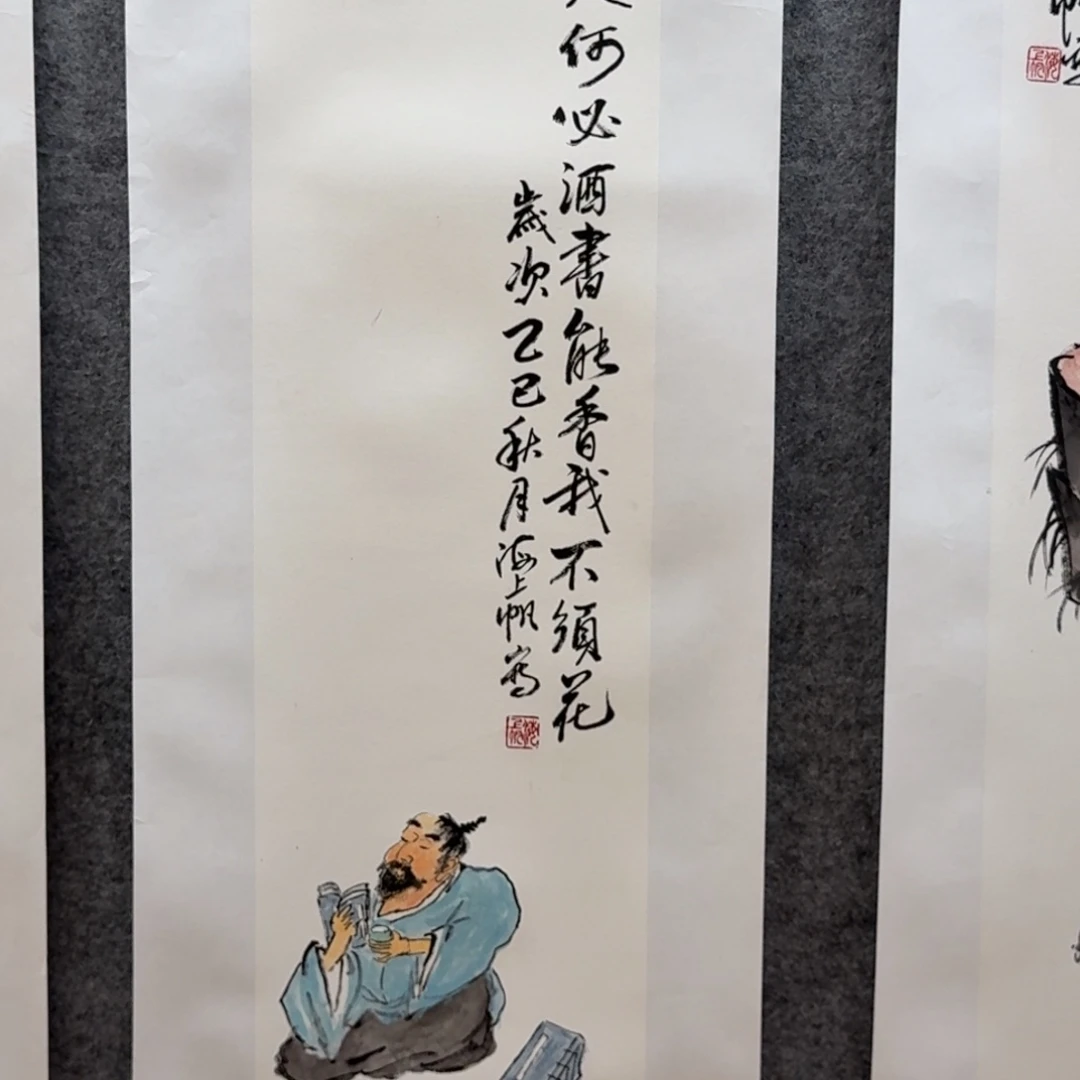 何必酒書能香我不須花
歲次乙巳秋月海上帆寫